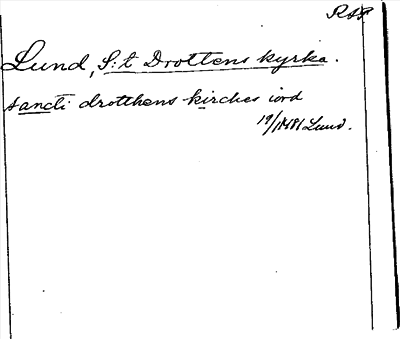 Lund, S:t Drottens kyrka.
sancti drotthens kirches iord
19/1 1481 Lund.